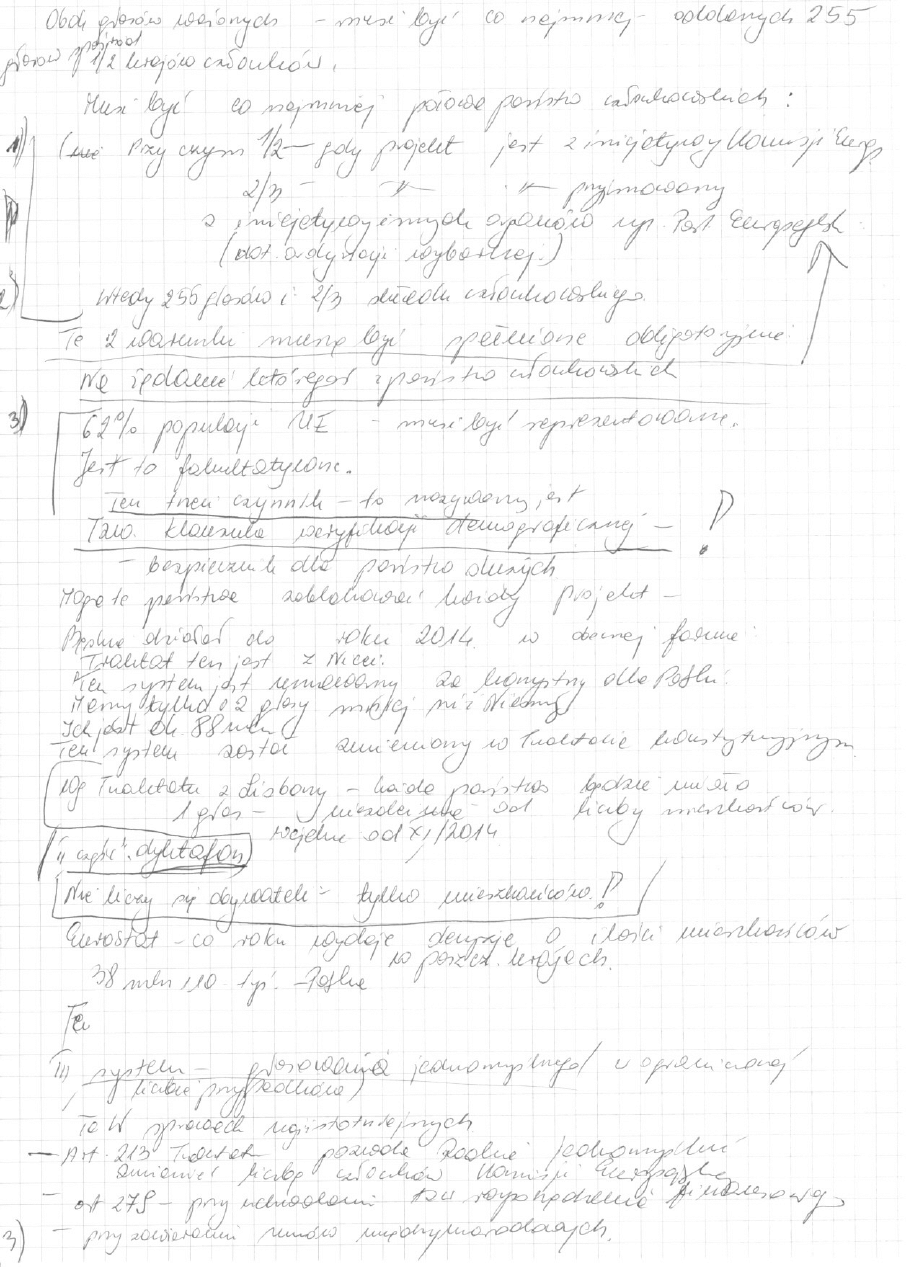 Obok głosów ważonych – musi być co najmniej oddanych 255
głosów spośród 1/2 krajów członków.
Musi być co najmniej połowa państw członkowskich :
1) Przy czym 1/2 – gdy projekt jest z inicjatywy Komisji Europ.
2/3 – –"– –"– przyjmowany
z inicjatywy innych organów np. Parl. Europejsk.
(dot. ordynacji wyborczej.)
2) Wtedy 255 głosów i 2/3 składu członkowskiego.
Te 2 warunki muszą być spełnione obligatoryjnie.
Na żądanie któregoś z państw członkowskich
3) 62% populacji UE – musi być reprezentowane.
Jest to fakultatywne.
Ten trzeci czynnik – to nazywany jest
Tzw. klauzula weryfikacji demograficznej – !
– bezpiecznik dla państw dużych
Mogą te państwa zablokować każdy projekt –
Będzie działać do roku 2014. w obecnej formie.
Traktat ten jest z Nicei.
Ten system jest uważany za korzystny dla Polski.
Mamy tylko o 2 głosy mniej niż Niemcy
Ich jest ok. 88 mln (
Ten system został zmieniony w Traktacie konstytucyjnym
Wg Traktatu z Lizbony – każde państwo będzie miało
1 głos – niezależnie od liczby mieszkańców.
wejdzie od XI/2014
"część". dyktafon
Nie liczy się obywateli – tylko mieszkańców. !
Eurostat – co roku wydaje decyzję o ilości mieszkańców
w poszcz. krajach.
38 mln 110 tyś. – Polska
Te
III) system – głosowania jednomyślnego / w ograniczonej
liczbie przypadków)
To w sprawach
– Art. 213 Traktat pozwala Radzie jednomyślnie
zmieniać liczbę członków Komisji Europejskiej
– art 279 – przy uchwalaniu tzw rozporządzenia finansowego
3) – przy zawieraniu umów międzynarodowych.